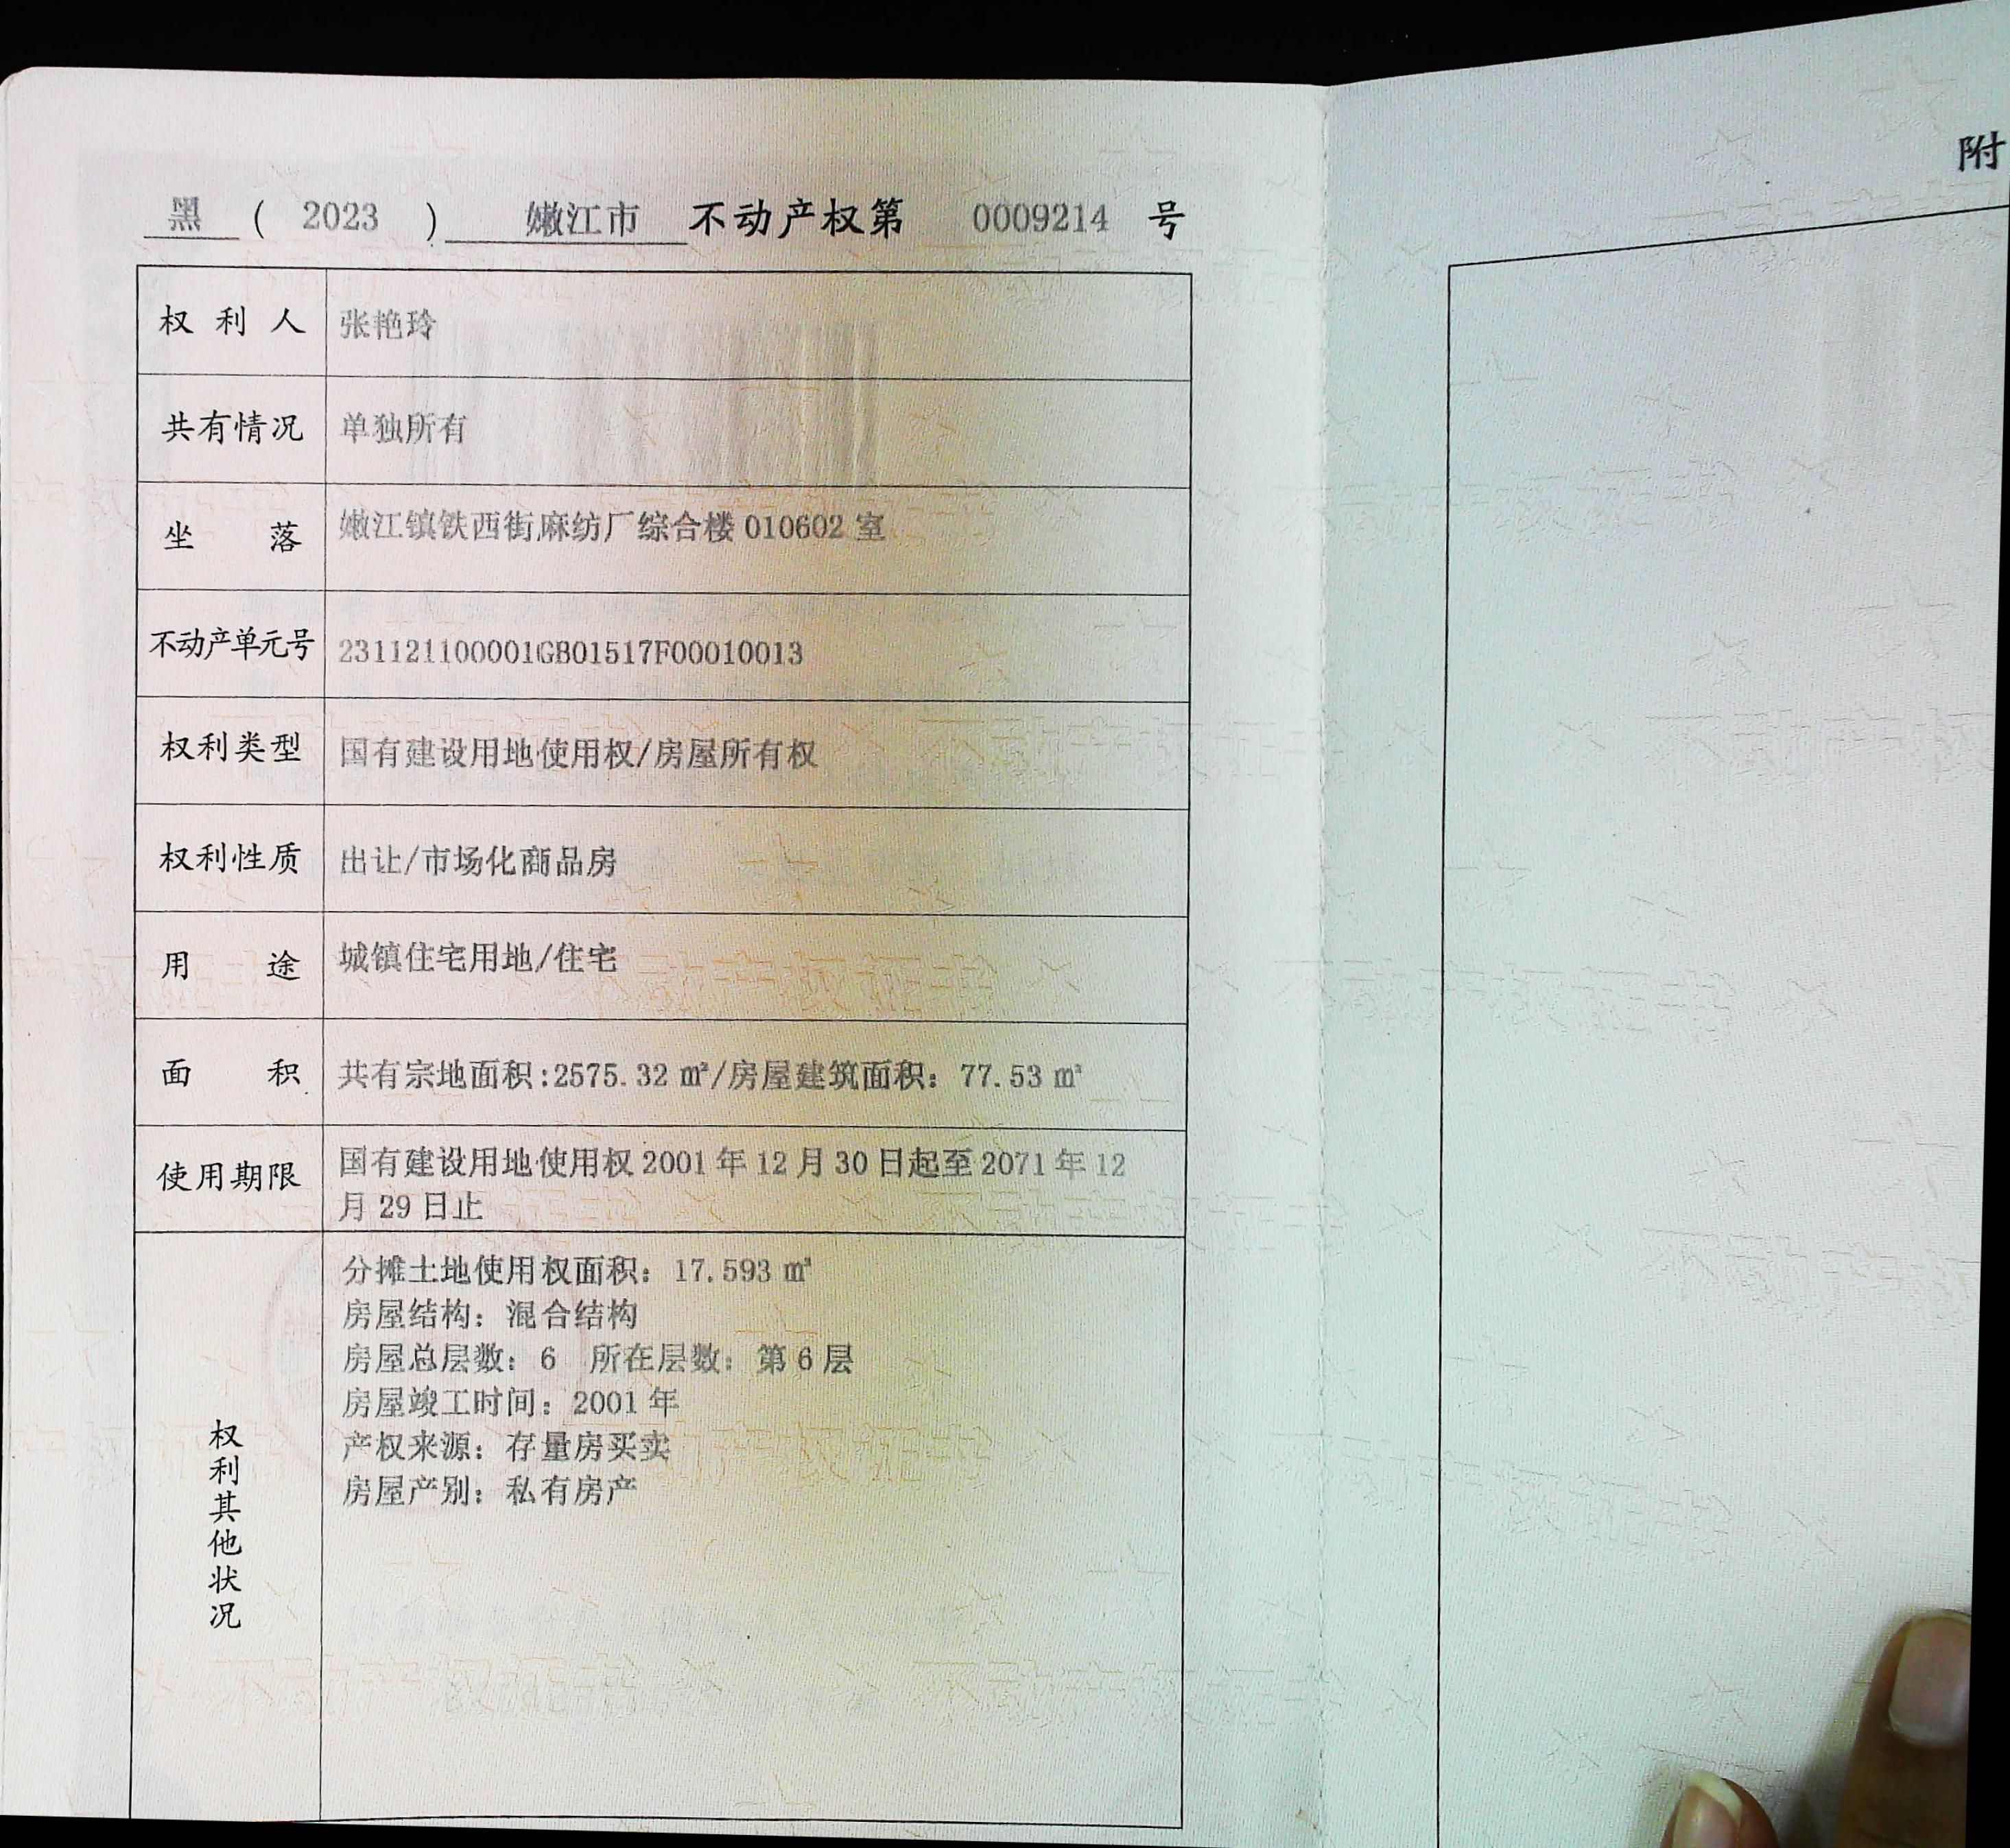 黑 ( 2023 ) 嫩江市 不动产权第 0009214 号
附
权利人 张艳玲
共有情况 单独所有
坐落 嫩江镇铁西街麻纺厂综合楼 010602 室
不动产单元号 231121100001GB01517F00010013
权利类型 国有建设用地使用权/房屋所有权
权利性质 出让/市场化商品房
用途 城镇住宅用地/住宅
面积 共有宗地面积:2575.32 ㎡/房屋建筑面积：77.53 ㎡
使用期限 国有建设用地使用权 2001 年 12 月 30 日起至 2071 年 12
月 29 日止
权利其他状况
分摊土地使用权面积：17.593 ㎡
房屋结构：混合结构
房屋总层数：6 所在层数：第 6 层
房屋竣工时间：2001 年
产权来源：存量房买卖
房屋产别：私有房产